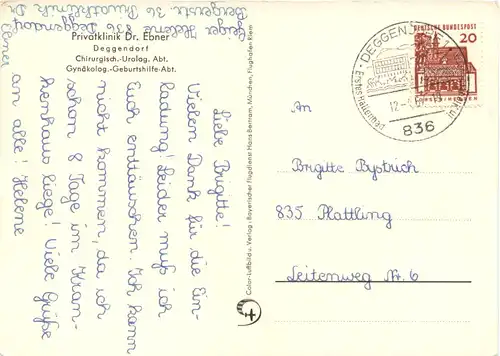 Geiger Helene 836 Deggendorf
Bergerstr. 36 Privatklinik Dr.
Ebner
Privatklinik Dr. Ebner
Deggendorf
Chirurgisch.-Urolog. Abt.
Gynäkolog.-Geburtshilfe-Abt.
Liebe Brigitte!
Vielen Dank für die Ein-
ladung! Leider muß ich
Euch enttäuschen. Ich kann
nicht kommen, da ich
schon 8 Tage im Kran-
kenhaus liege! Viele Grüße
an alle! Helene
Color-Luftbild u. Verlag: Bayerischer Flugdienst Hans Bertram, München, Flughafen Riem
DEGGEN
Erstes Hallenbad
12.-4
836
DEUTSCHE BUNDESPOST
20
An
Brigitte Bystrich
835 Plattling
Leitenweg Nr. 6